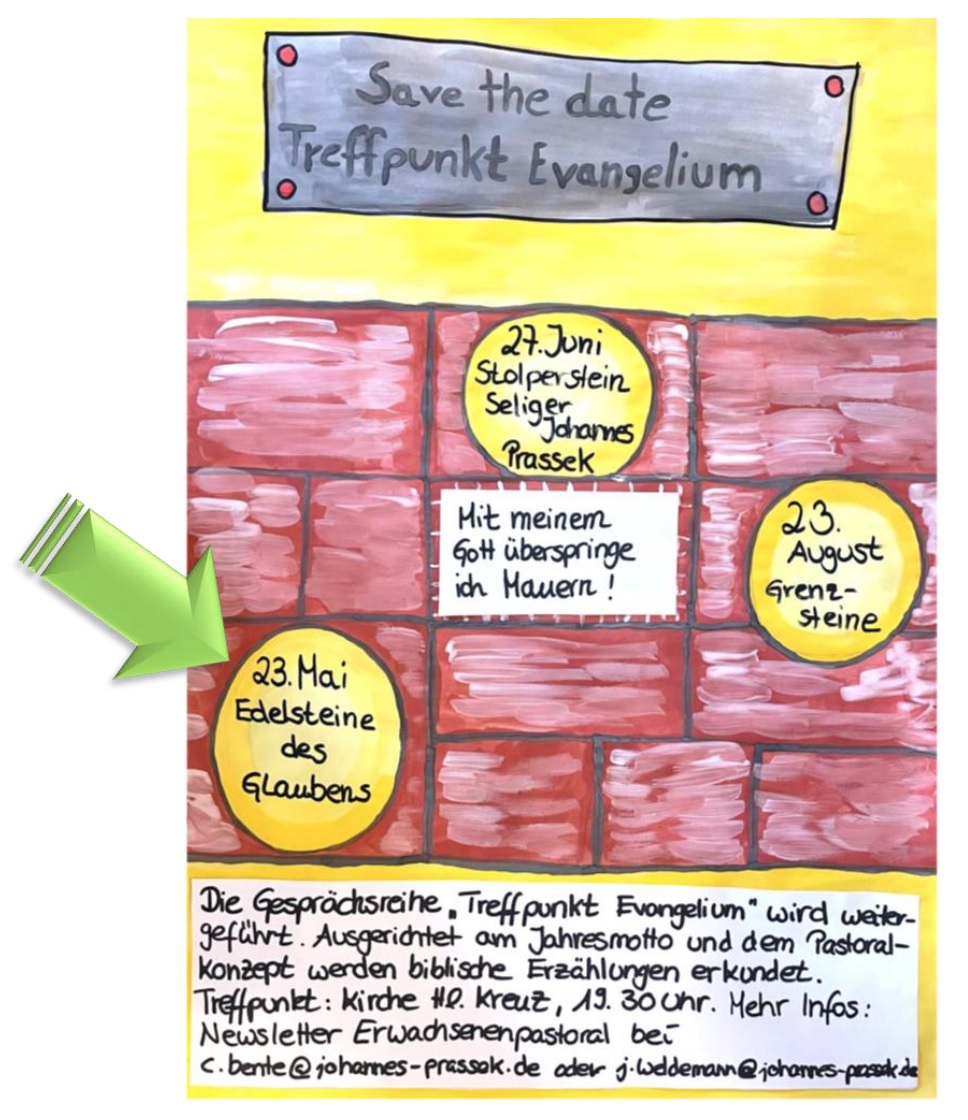 Save the date
Treffpunkt Evangelium
27. Juni
Stolperstein
Seliger
Johannes
Prassek
Mit meinem
Gott überspringe
ich Mauern!
23.
August
Grenz-
steine
23. Mai
Edelsteine
des
Glaubens
Die Gesprächsreihe „Treffpunkt Evangelium" wird weiter-
geführt. Ausgerichtet am Jahresmotto und dem Pastoral-
konzept werden biblische Erzählungen erkundet.
Treffpunkt: Kirche Hl. Kreuz, 19.30 Uhr. Mehr Infos:
Newsletter Erwachsenenpastoral bei
c.bente@johannes-prassek.de oder j.weddemann@johannes-prassek.de